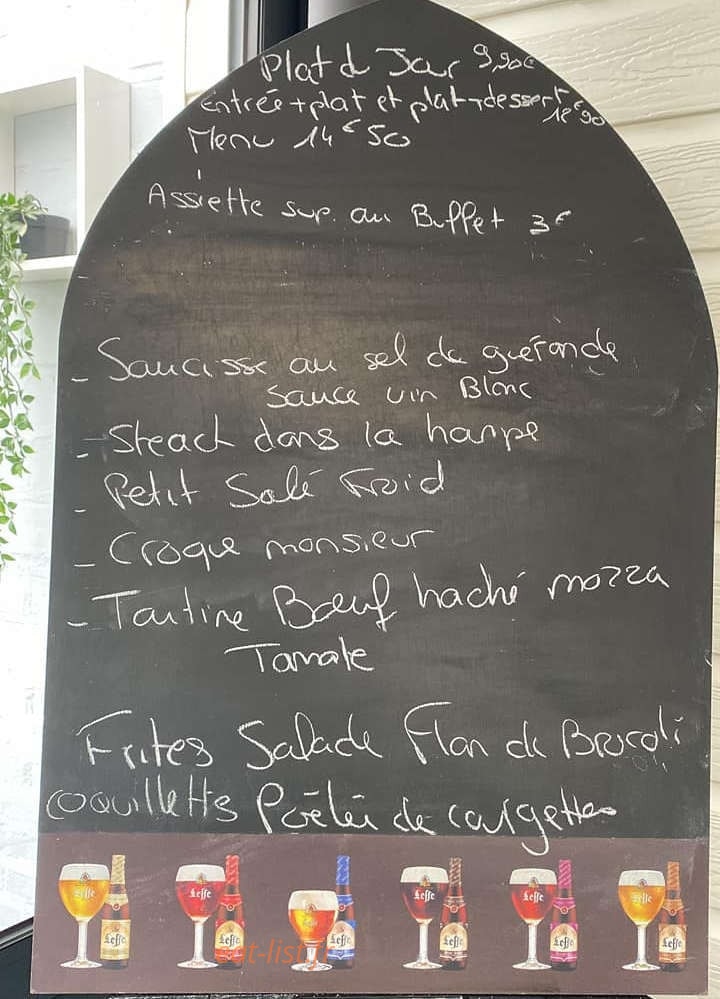 Plat d Jour 9,90€
Entrée + plat et plat + dessert 12€90
Menu 14€50
Assiette sup. au Buffet 3€
- Saucisse au sel de guérande
sauce vin Blanc
- Steack dans la hampe
- Petit Salé Froid
- Croque monsieur
- Tartine Bœuf haché mozza
Tomate
Frites Salade Flan de Brocoli
coquilletts Poêlée de courgettes
Leffe Leffe Leffe Leffe Leffe
Leffe Leffe Leffe Leffe Leffe Leffe